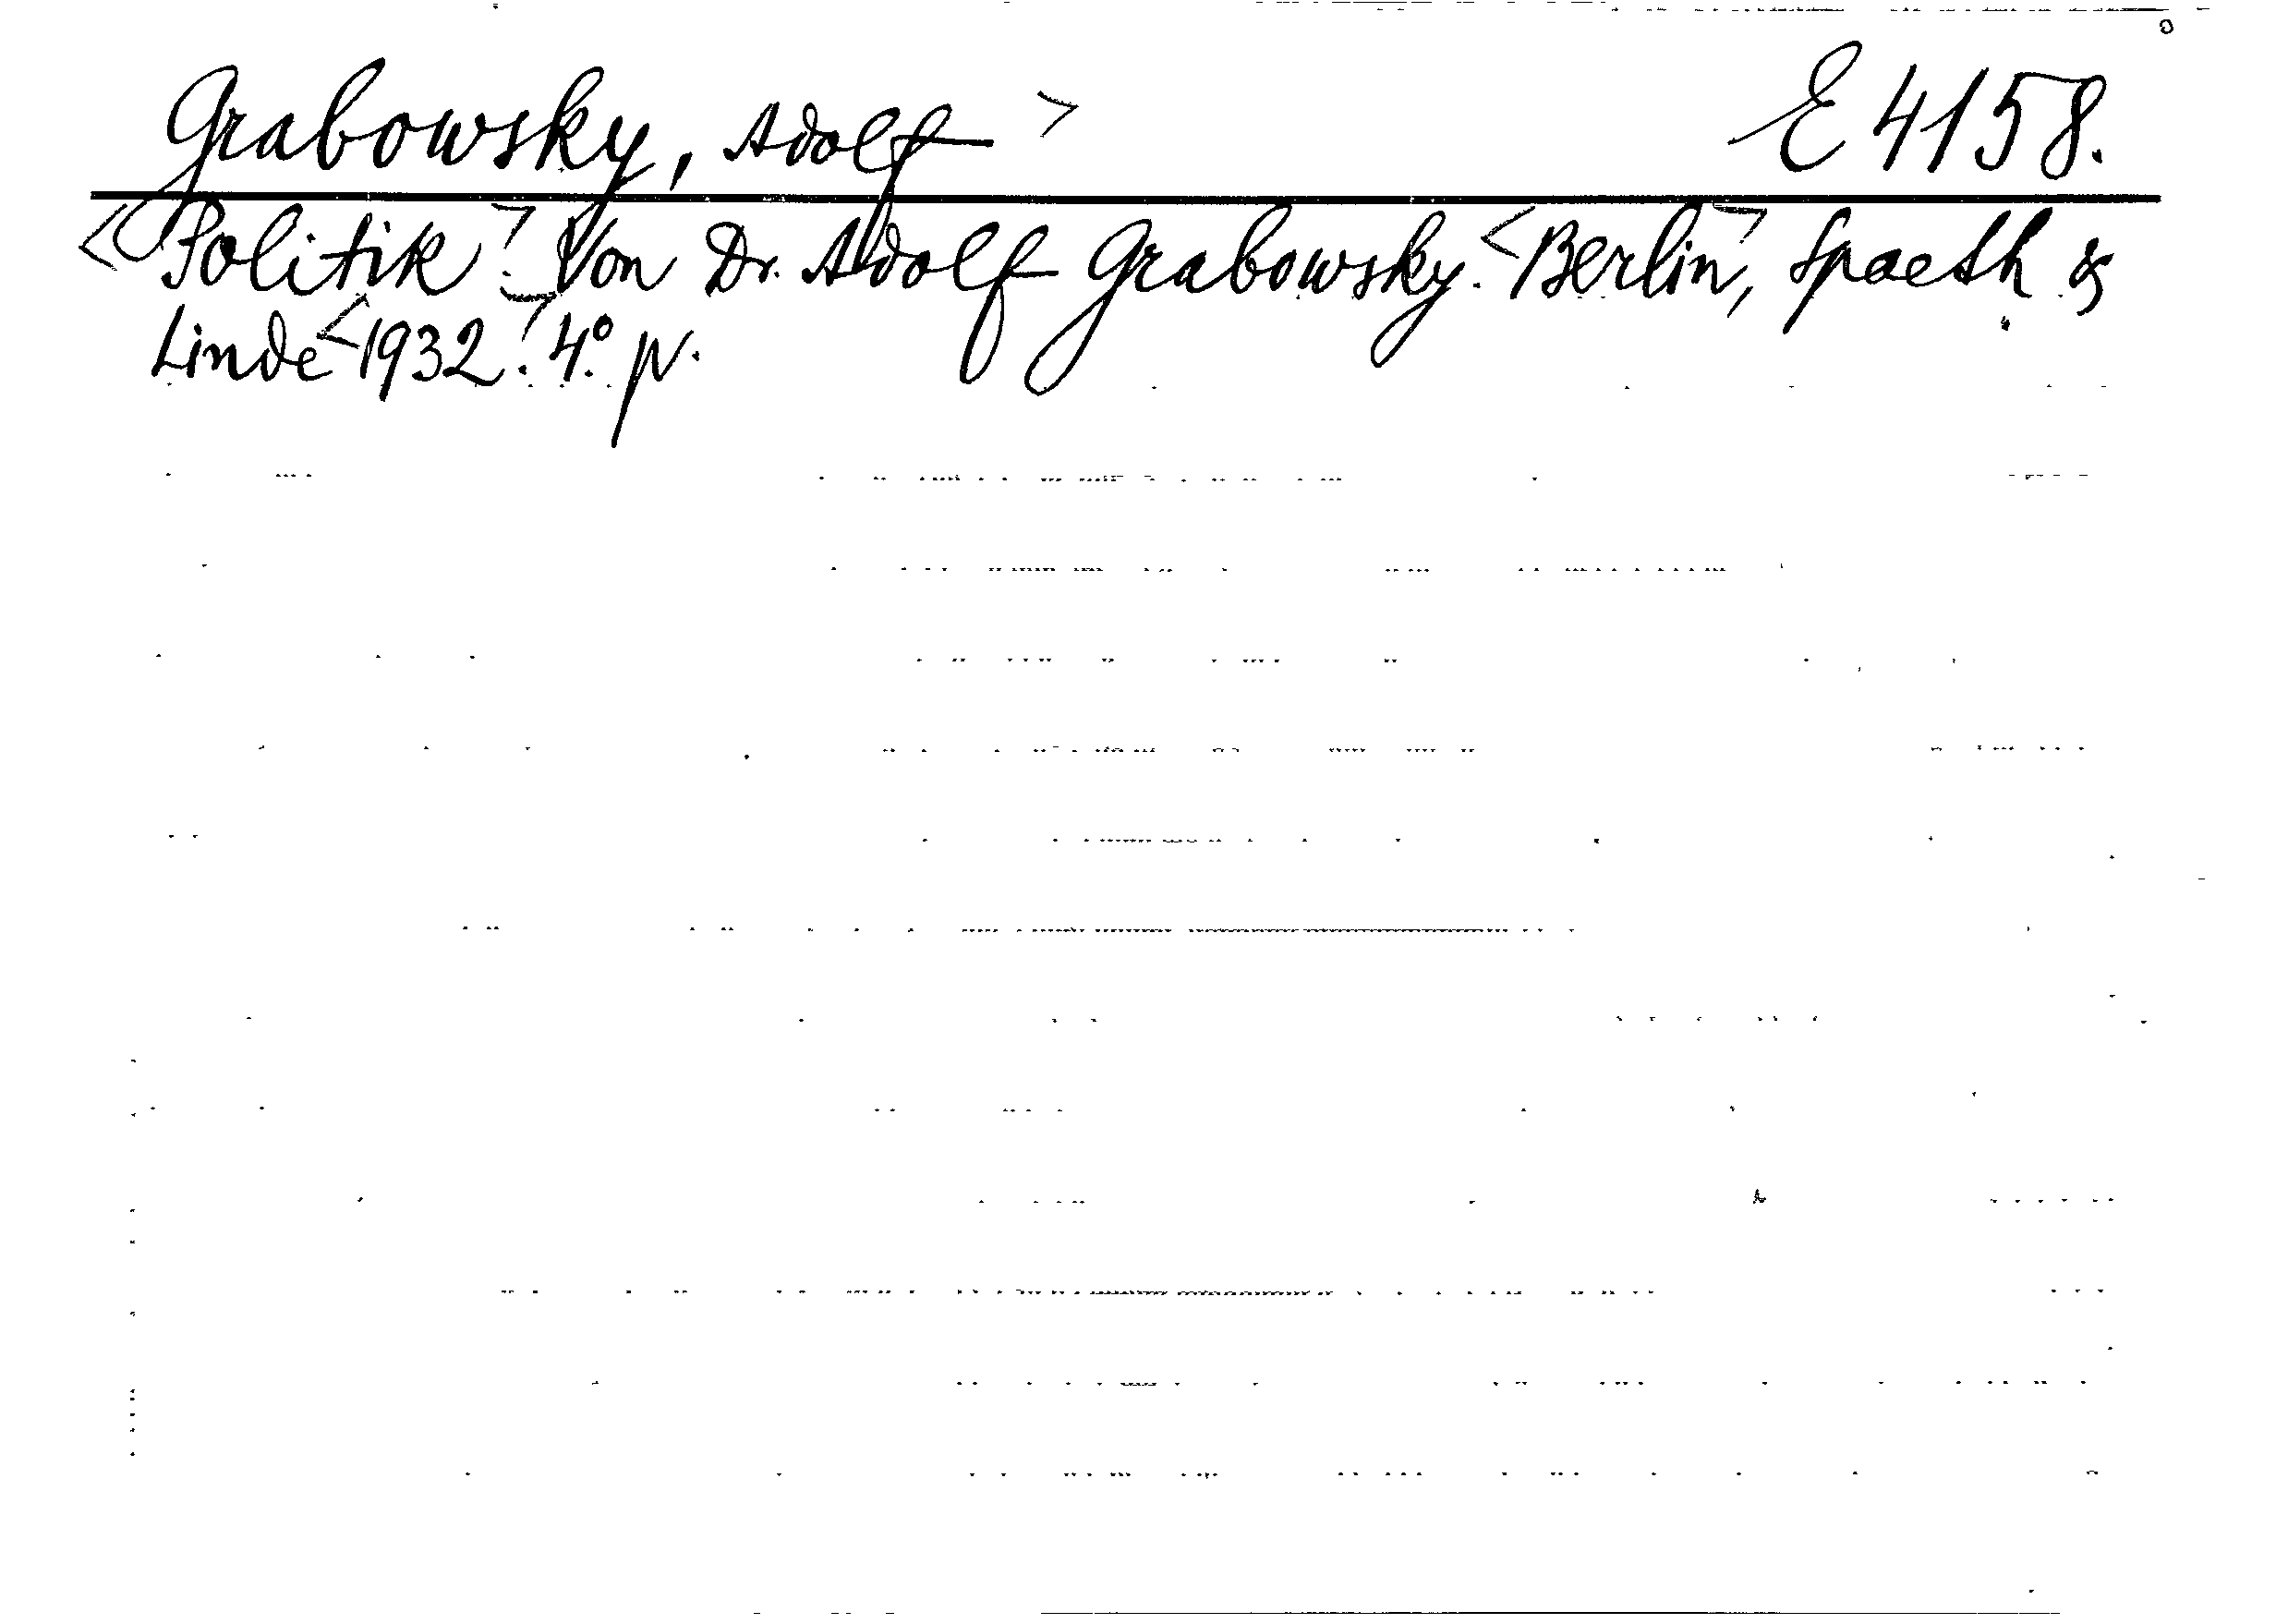 Grabowsky, Adolf > E 4158.
<Politik.> Von Dr. Adolf Grabowsky. <Berlin>, Spaeth &
Linde <1932.> 4° p.